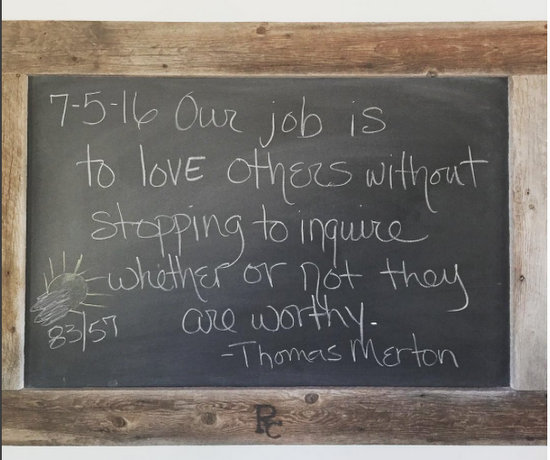 7-5-16 Our job is
to love others without
stopping to inquire
whether or not they
are worthy.
83/57
-Thomas Merton
RC